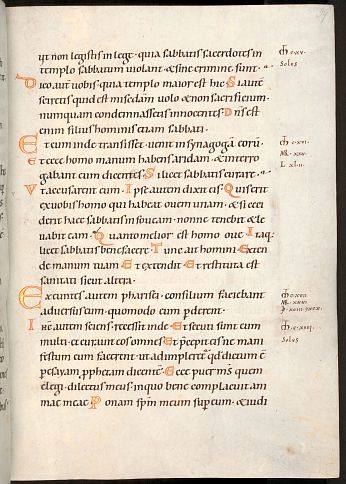 ut non legistis in lege. quia sabbatis sacerdotes in
templo sabbatum violant. & sine crimine sunt.
Dico aut uobis. quia templo maior est hic. Si aute
sciretis quid est misc̄dam uolo & non sacrificium.
numquam condemnassetis innocentes. Dn̄s est
enim filius hominis etiam sabbati.
Et cum inde transisset. uenit in synagogā eorū.
Et ecce homo manum habens aridam. & interro
gabant eum dicentes. Si licet sabbatis curare.
Vt accusarent eum. Ipse autem dixit eis. Quis erit
ex uobis homo qui habeat ouem unam. & si ceci
derit haec sabbatis in foueam. nonne tenebit & le
uabit eam. Quanto melior est homo oue. Itaq;
licet sabbatis bene facere. Tunc ait homini. Exten
de manum tuam. Et extendit. Et restituta est
sanitati sicut altera.
Exeuntes autem pharisei. consilium faciebant
aduersus eum. quomodo eum perderent.
Ihc autem sciens. recessit inde. Et secuti sunt eum
multi. et curauit eos omnes. Et p̄cepit eis ne mani
festum eum facerent. ut adimpleret̄ qd dictum ē
per esayam ppham dicentē. Ecce puer ms quem
elegi. dilectus meus in quo bene complacuit ani
mae meae. Ponam spm meum super eum. & iudi
Solus
Solus